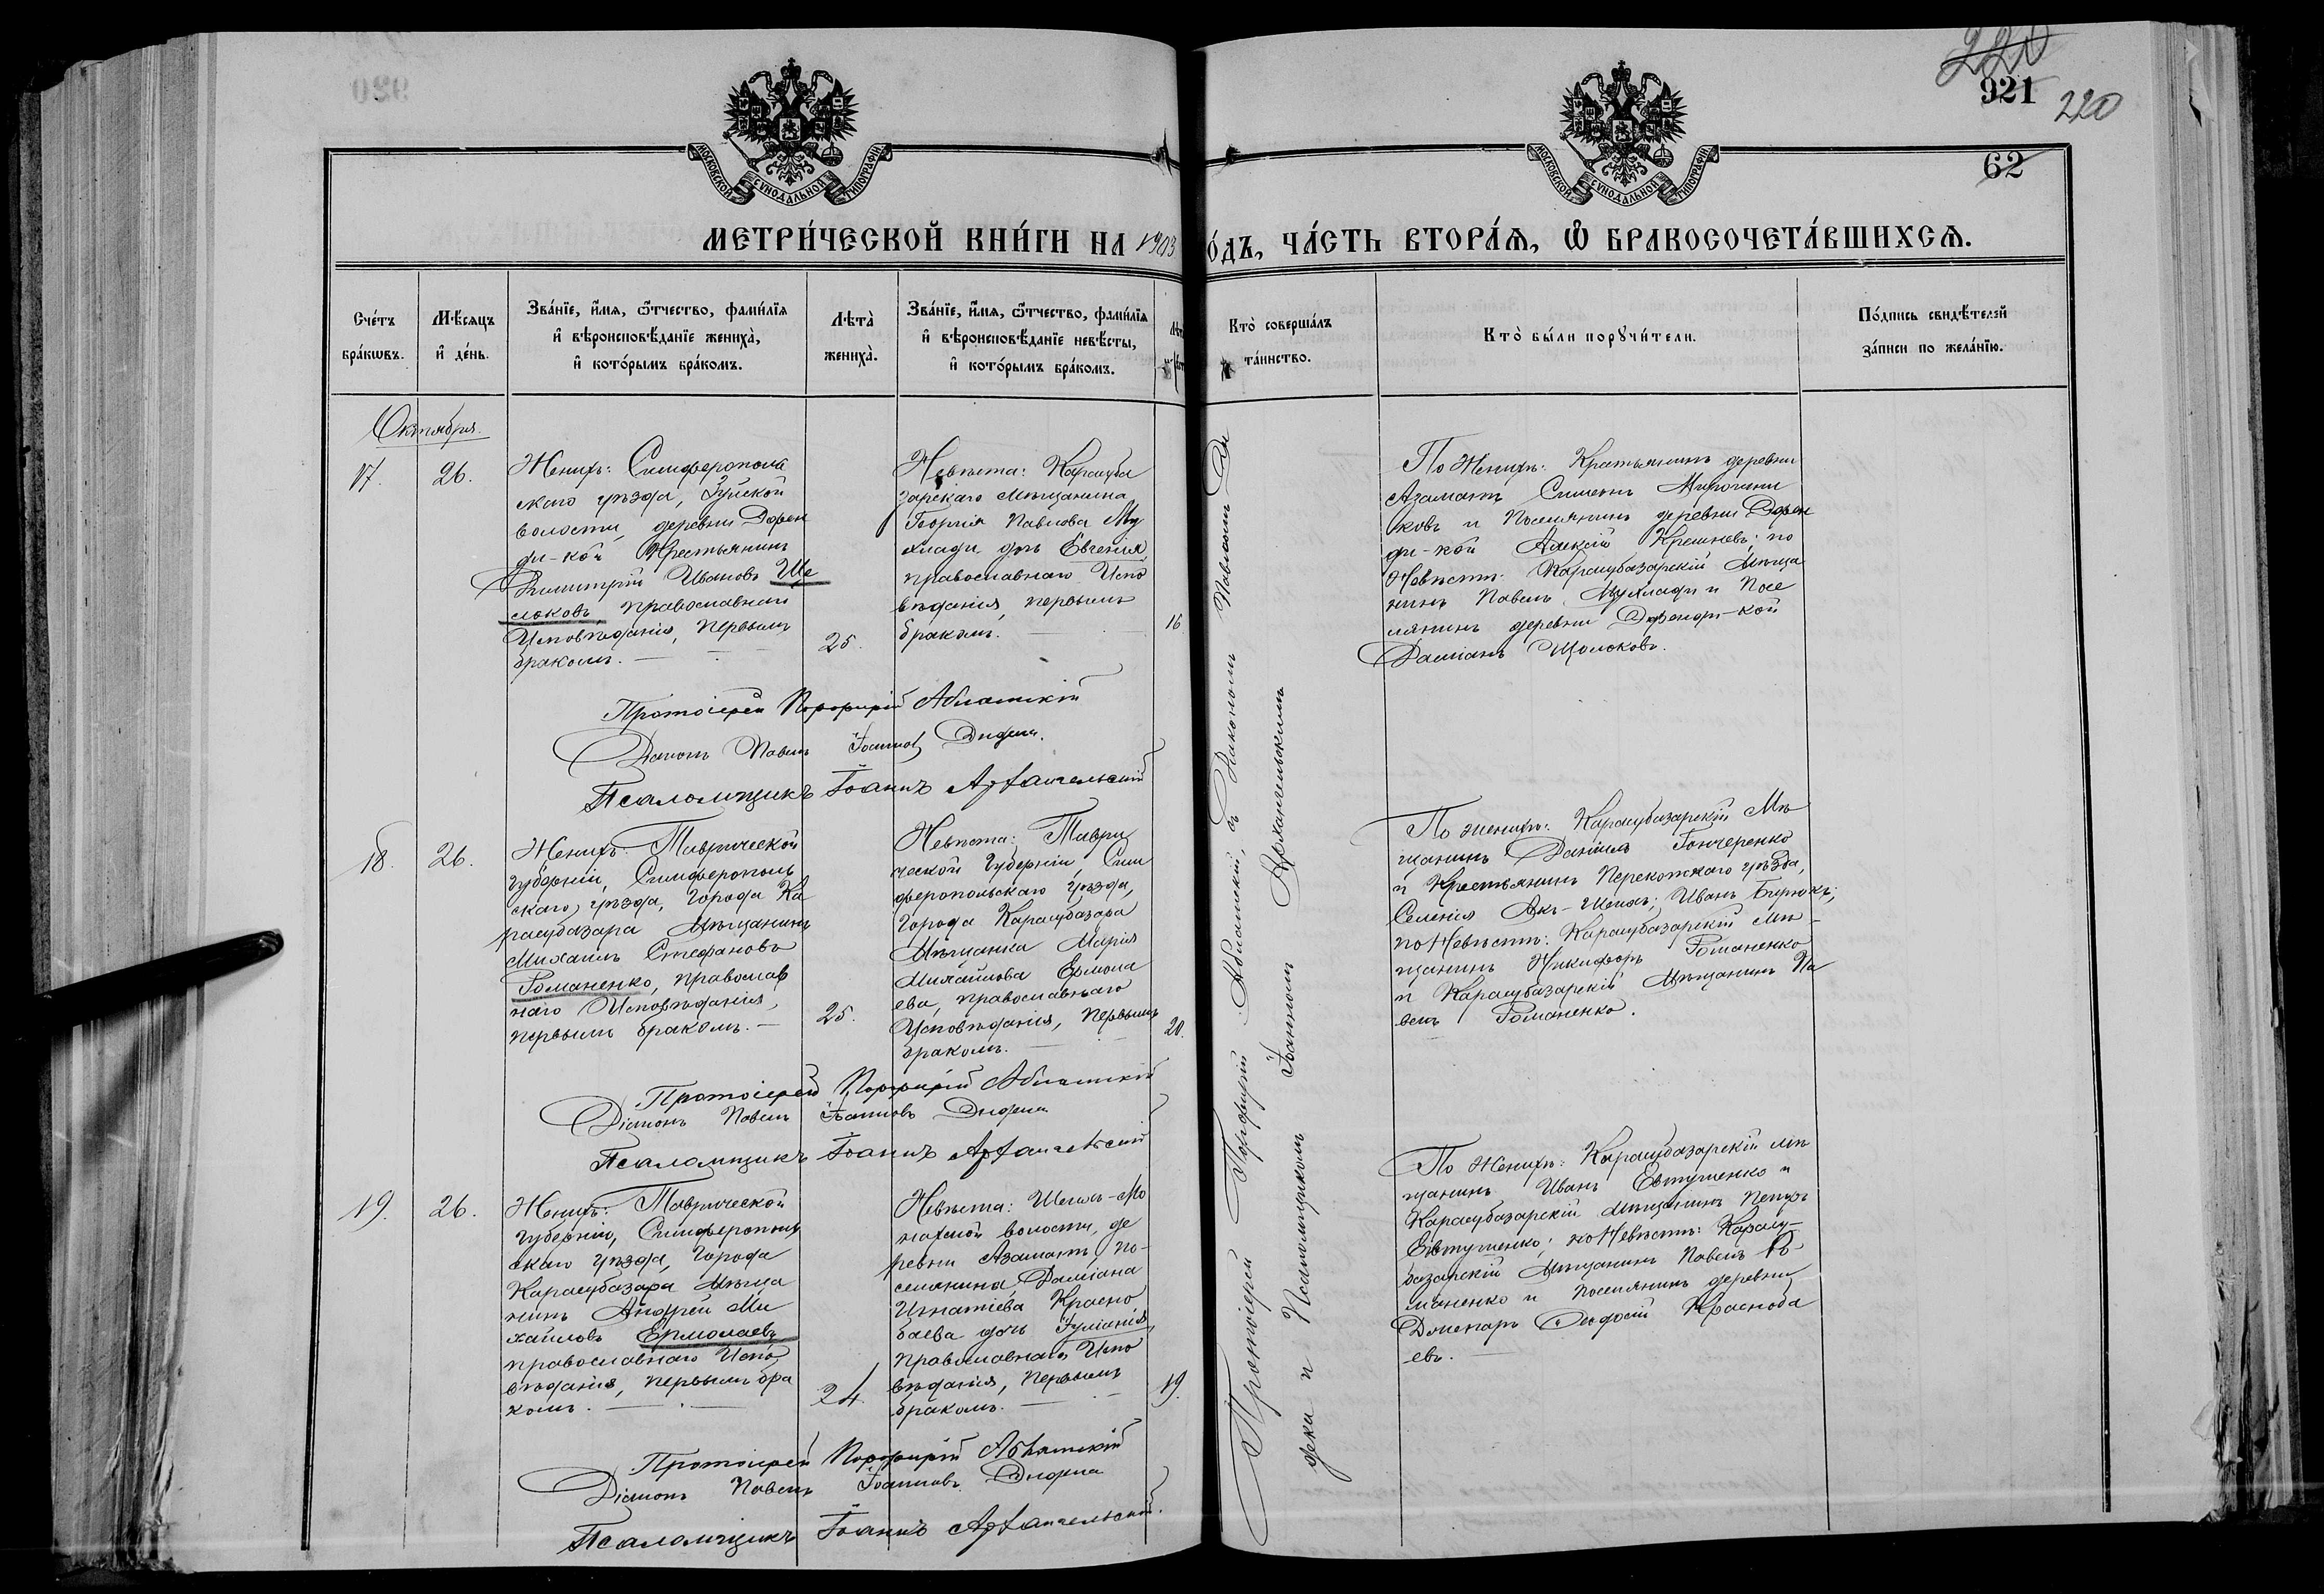 920
221
921
220
62
МОСКОВСКОЙ СУНОДАЛЬНОЙ ТИПОГРАФІИ
МОСКОВСКОЙ СУНОДАЛЬНОЙ ТИПОГРАФІИ
МЕТРИ́ЧЕСКОЙ КНИ́ГИ НА 1903
О́ДЪ, ЧА́СТЬ ВТОРА́Я, Ѡ БРАКОСОЧЕТА́ВШИХСЯ.
Сче́тъ бра́кѡвъ.
Мѣ́сяцъ и де́нь.
Зва́нїе, и́мя, ѻ́тчество, фами́лїя и вѣроисповѣ́данїе жениха̀, и кото́рымъ бра́комъ.
Лѣта̀ жениха̀.
Зва́нїе, и́мя, ѻ́тчество, фами́лїя и вѣроисповѣ́данїе невѣ́сты, и кото́рымъ бра́комъ.
Кто̀ соверша́лъ та́инство.
Кто̀ бы́ли порꙋчи́тели.
По́дпись свидѣ́телей за́писи по жела́нїю.
Октября.
17.
26.
Женихъ: Симферополь
скаго уѣзда, Зуйской
волости, деревни Эфен
ди-кой Крестьянинъ
Димитрій Ивановъ Ще
локовъ, православнаго
Исповѣданія, первымъ
бракомъ.
25.
Невѣста: Карасуба
зарскаго мѣщанина
Георгія Павлова Му
хлади дочь Евгенія,
православнаго Испо
вѣданія, первымъ
бракомъ.
16
По Женихѣ: Крестьянинъ деревни
Азаматъ Симеонъ
ковъ и Поселянинъ деревни Эфен
ди-кой Алексій; по
Невѣстѣ: Карасубазарскій мѣща
нинъ Павелъ Мухлади и Посе
лянинъ деревни Эфенди-кой
Даміанъ Щолоковъ.
Протоіерей Порфирій Аблатскій
Діаконъ Павелъ Іоанновъ
Псаломщикъ Іоаннъ Архангельскій
18.
26.
Женихъ: Таврической
Губерніи, Симферополь
скаго уѣзда, Города Ка
расубазара Мѣщанинъ
Михаилъ Стефановъ
Романенко, православ
наго Исповѣданія,
первымъ бракомъ.
25.
Невѣста: Таври
ческой Губерніи, Сим
феропольскаго уѣзда,
Города Карасубазара
Мѣщанка Марія
Михайлова Ермола
ева, православнаго
Исповѣданія, первымъ
бракомъ.
20.
По женихѣ: Карасубазарскій Мѣ
щанинъ Даніилъ Гончеренко
и Крестьянинъ Перекопскаго уѣзда,
Селенія Ак-Шеихъ; Иванъ Бирюкъ;
по Невѣстѣ: Карасубазарскій Мѣ-
щанинъ Никифоръ Романенко
и Карасубазарскій Мѣщанинъ Па
велъ Романенко.
Протоіерей Порфирій Аблатскій
Діаконъ Павелъ Іоанновъ
Псаломщикъ Іоаннъ Архангельскій
19.
26.
Женихъ: Таврической
Губерніи, Симферополь
скаго уѣзда, Города
Карасубазара Мѣща
нинъ Андрей Ми
хайловъ Ермолаевъ
православнаго Испо
вѣданія, первымъ бра
комъ.
24.
Невѣста: Шеихъ-Мо
нахской волости, де
ревни Азаматъ, по-
селянина Даміана
Игнатіева Красно
баева дочь Іуліанія,
православнаго Испо
вѣданія, первымъ
бракомъ.
19.
По Женихѣ: Карасубазарскій мѣ
щанинъ Иванъ Евтушенко и
Карасубазарскій мѣщанинъ Петръ
Евтушенко; по Невѣстѣ: Карасу-
базарскій Мѣщанинъ Павелъ Ро
маненко и Поселянинъ деревни
Феодосій Краснобa
евъ.
Протоіерей Порфирій Аблатскій
Діаконъ Павелъ Іоанновъ
Псаломщикъ Іоаннъ Архангельскій.
Протоіерей Порфирій Аблатскій, съ Діакономъ Павломъ
и Псаломщикомъ Іоанномъ Архангельскимъ